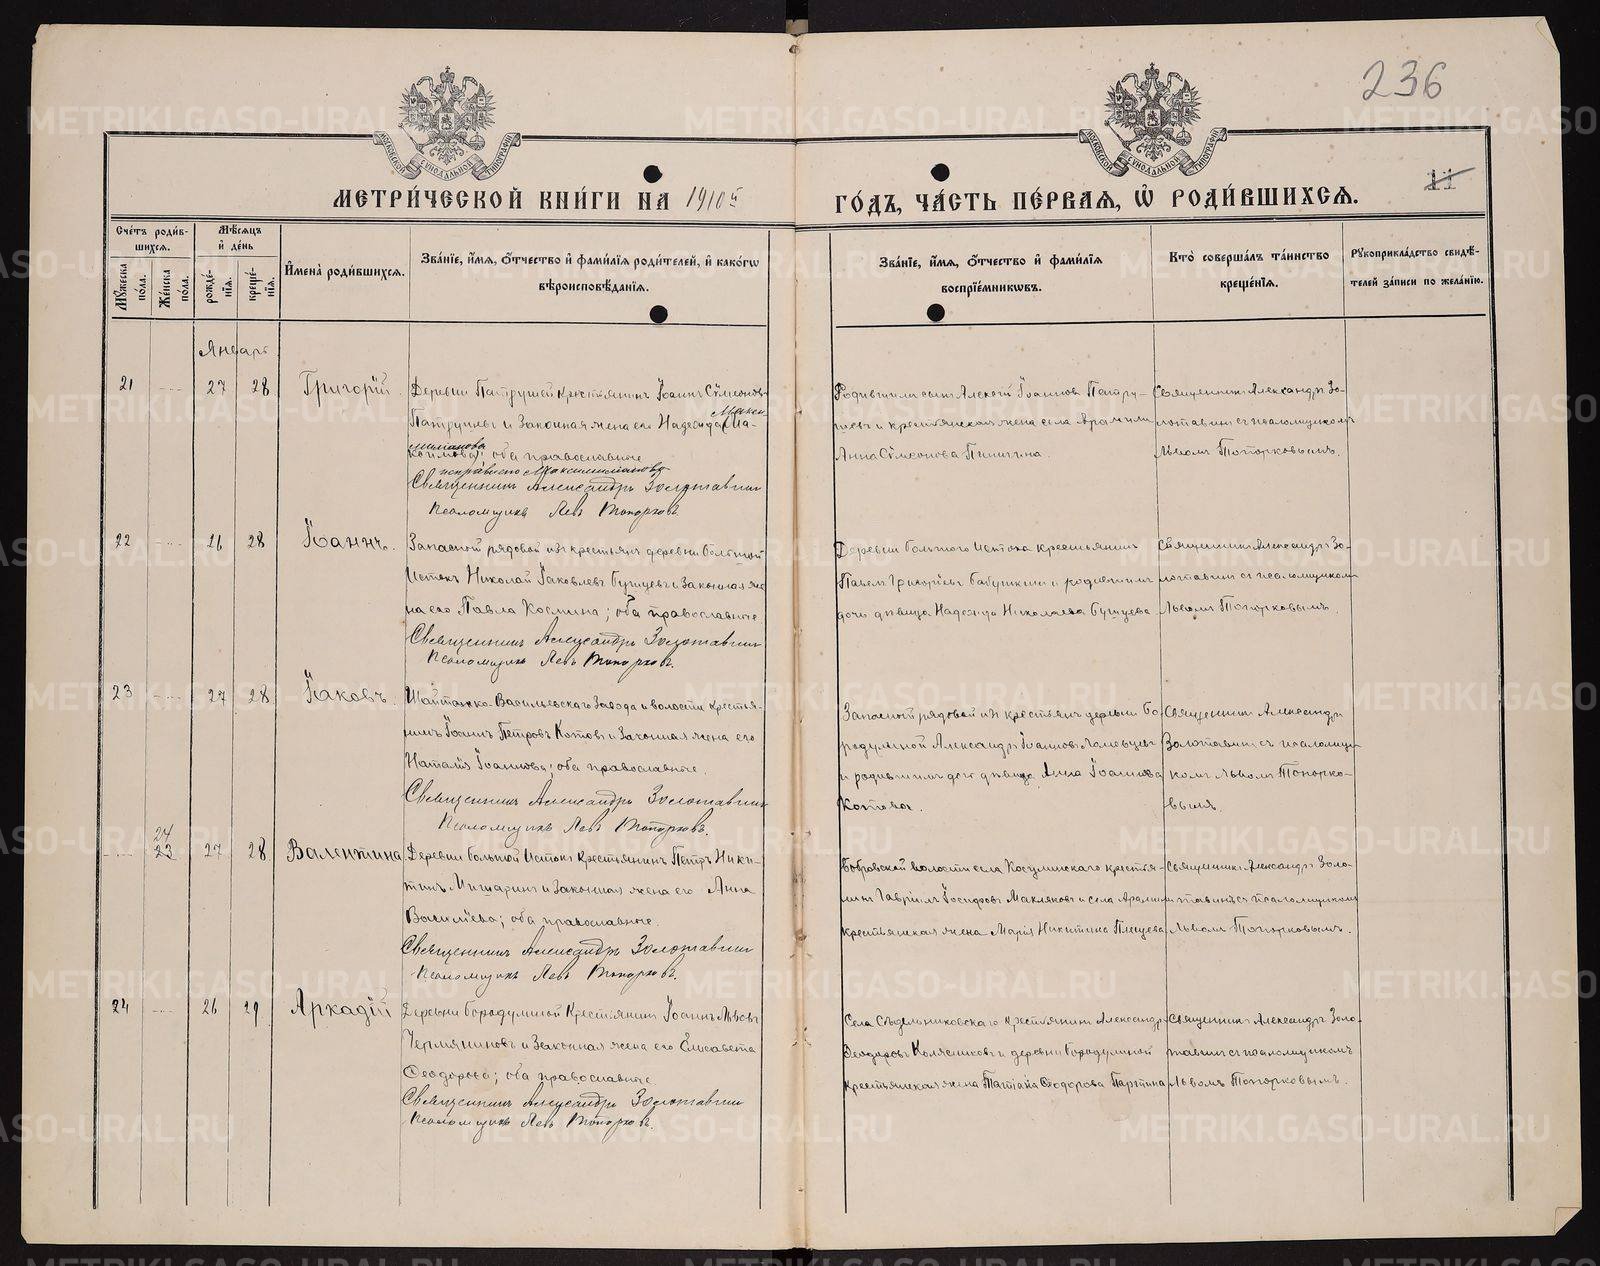 236
МЕТРИ́ЧЕСКОЙ КНИ́ГИ НА 1910й ГО́ДЪ, ЧА́СТЬ ПЕ́РВАЯ, Ѡ РОДИ́ВШИХСЯ.
11
Сче́тъ роди́в-
шихся.
Мꙋжеска
по́ла.
Же́нска
по́ла.
Мѣ́сяцъ
и́ де́нь
рожде́-
нїя.
креще́-
нїя.
И҆мена̀ роди́вшихся.
Зва́нїе, и҆́мя, ѻ҆́тчество и҆ фами́лїя роди́телей, и҆ како́гѡ
вѣроисповѣ́данїя.
Зва́нїе, и҆́мя, ѻ҆́тчество и҆ фами́лїя
воспрїе́мникѡвъ.
Кто̀ соверша́лъ та́инство
креще́нїя.
Рꙋкоприкла́дство свидѣ́-
телей за́писи по жела́нїю.
Январь
21
27
28
Григорій.
Деревни Патрушей крестьянинъ Іоаннъ Сѵмеоновъ
Патрушевъ и законная жена его Надежда
оба православные
исправлено Максимилианова
Священникъ Александръ Золотавинъ
Псаломщикъ Левъ Топорковъ.
Родившихъ сынъ Алексій Іоанновъ Патру-
шевъ и крестьянская жена села Арамили
Анна Сѵмеонова Пинигина.
Священникъ Александръ Зо-
лотавинъ съ псаломщикомъ
Львомъ Топорковымъ.
22
26
28
Іоаннъ.
Запасной рядовой изъ крестьянъ деревни большой
Истокъ Николай Іаковлевъ и законная же-
на его Павла Космина; оба православные
Священникъ Александръ Золотавинъ
Псаломщикъ Левъ Топорковъ.
Деревни большого Истока крестьянинъ
Павелъ Григорьевъ Бабушкинъ и родившихъ
дочь дѣвица Надежда Николаева
Священникъ Александръ Зо-
лотавинъ съ псаломщикомъ
Львомъ Топорковымъ.
23
27
28
Іаковъ.
Шайтанско-Васильевскаго завода и волости крестья-
нинъ Іоаннъ Петровъ Котовъ и законная жена его
Наталія Іоаннова; оба православные.
Священникъ Александръ Золотавинъ
Псаломщикъ Левъ Топорковъ.
Запасной рядовой изъ крестьянъ деревни Бо-
родулиной Александръ Іоанновъ
и родившихъ дочь дѣвица Анна Іоаннова
Котова.
Священникъ Александръ
Золотавинъ съ псаломщи-
комъ Львомъ Топорко-
вымъ.
24
23
27
28
Валентина
Деревни большой Истокъ крестьянинъ Петръ Ники-
тинъ Мишаринъ и законная жена его Анна
Васильева; оба православные.
Священникъ Александръ Золотавинъ
Псаломщикъ Левъ Топорковъ.
Бобровской волости села Косулинскаго крестья-
нинъ Гавріилъ Іосифовъ Макляковъ и села Арамили
крестьянская жена Марія Никитина Плещева
Священникъ Александръ Золо-
тавинъ съ псаломщикомъ
Львомъ Топорковымъ.
24
26
29
Аркадій
Деревни Бородулиной крестьянинъ Іоаннъ Львовъ
Чермяниновъ и законная жена его Елисавета
Ѳеодорова; оба православные
Священникъ Александръ Золотавинъ
Псаломщикъ Левъ Топорковъ.
Села Сѣдельниковскаго крестьянинъ Александръ
Ѳеодоровъ Колясниковъ и деревни Бородулиной
крестьянская жена Татіана Ѳеодорова Партина
Священникъ Александръ Золо-
тавинъ съ псаломщикомъ
Львомъ Топорковымъ.